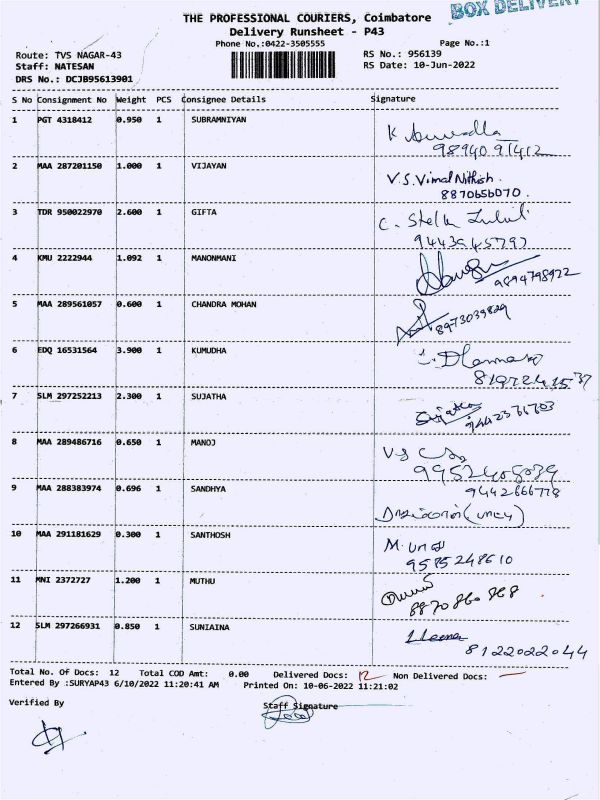 BOX DELIVERY
THE PROFESSIONAL COURIERS, Coimbatore
Delivery Runsheet - P43
Phone No.:0422-3505555
Page No.:1
Route: TVS NAGAR-43
RS No.: 956139
Staff: NATESAN
RS Date: 10-Jun-2022
DRS No.: DCJB95613901
S No Consignment No Weight PCS Consignee Details Signature
1 PGT 4318412 0.950 1 SUBRAMNIYAN
98940 91412
2 MAA 287201150 1.000 1 VIJAYAN
V.S. Vimal Nithish.
8870656070.
3 TDR 950022970 2.600 1 GIFTA
C. Stella
9443945797
4 KMU 2222944 1.092 1 MANONMANI
9894798922
5 MAA 289561057 0.600 1 CHANDRA MOHAN
8973039829
6 EDQ 16531564 3.900 1 KUMUDHA
7 SLM 297252213 2.300 1 SUJATHA
Sujatha
8 MAA 289486716 0.650 1 MANOJ
9 MAA 288383974 0.696 1 SANDHYA
9442666778
10 MAA 291181629 0.300 1 SANTHOSH
9585248610
11 MNI 2372727 1.200 1 MUTHU
8870860868
12 SLM 297266931 0.850 1 SUNIAINA
8122022044
Total No. Of Docs: 12 Total COD Amt: 0.00 Delivered Docs: 12 Non Delivered Docs: —
Entered By :SURYAP43 6/10/2022 11:20:41 AM Printed On: 10-06-2022 11:21:02
Verified By
Staff Signature